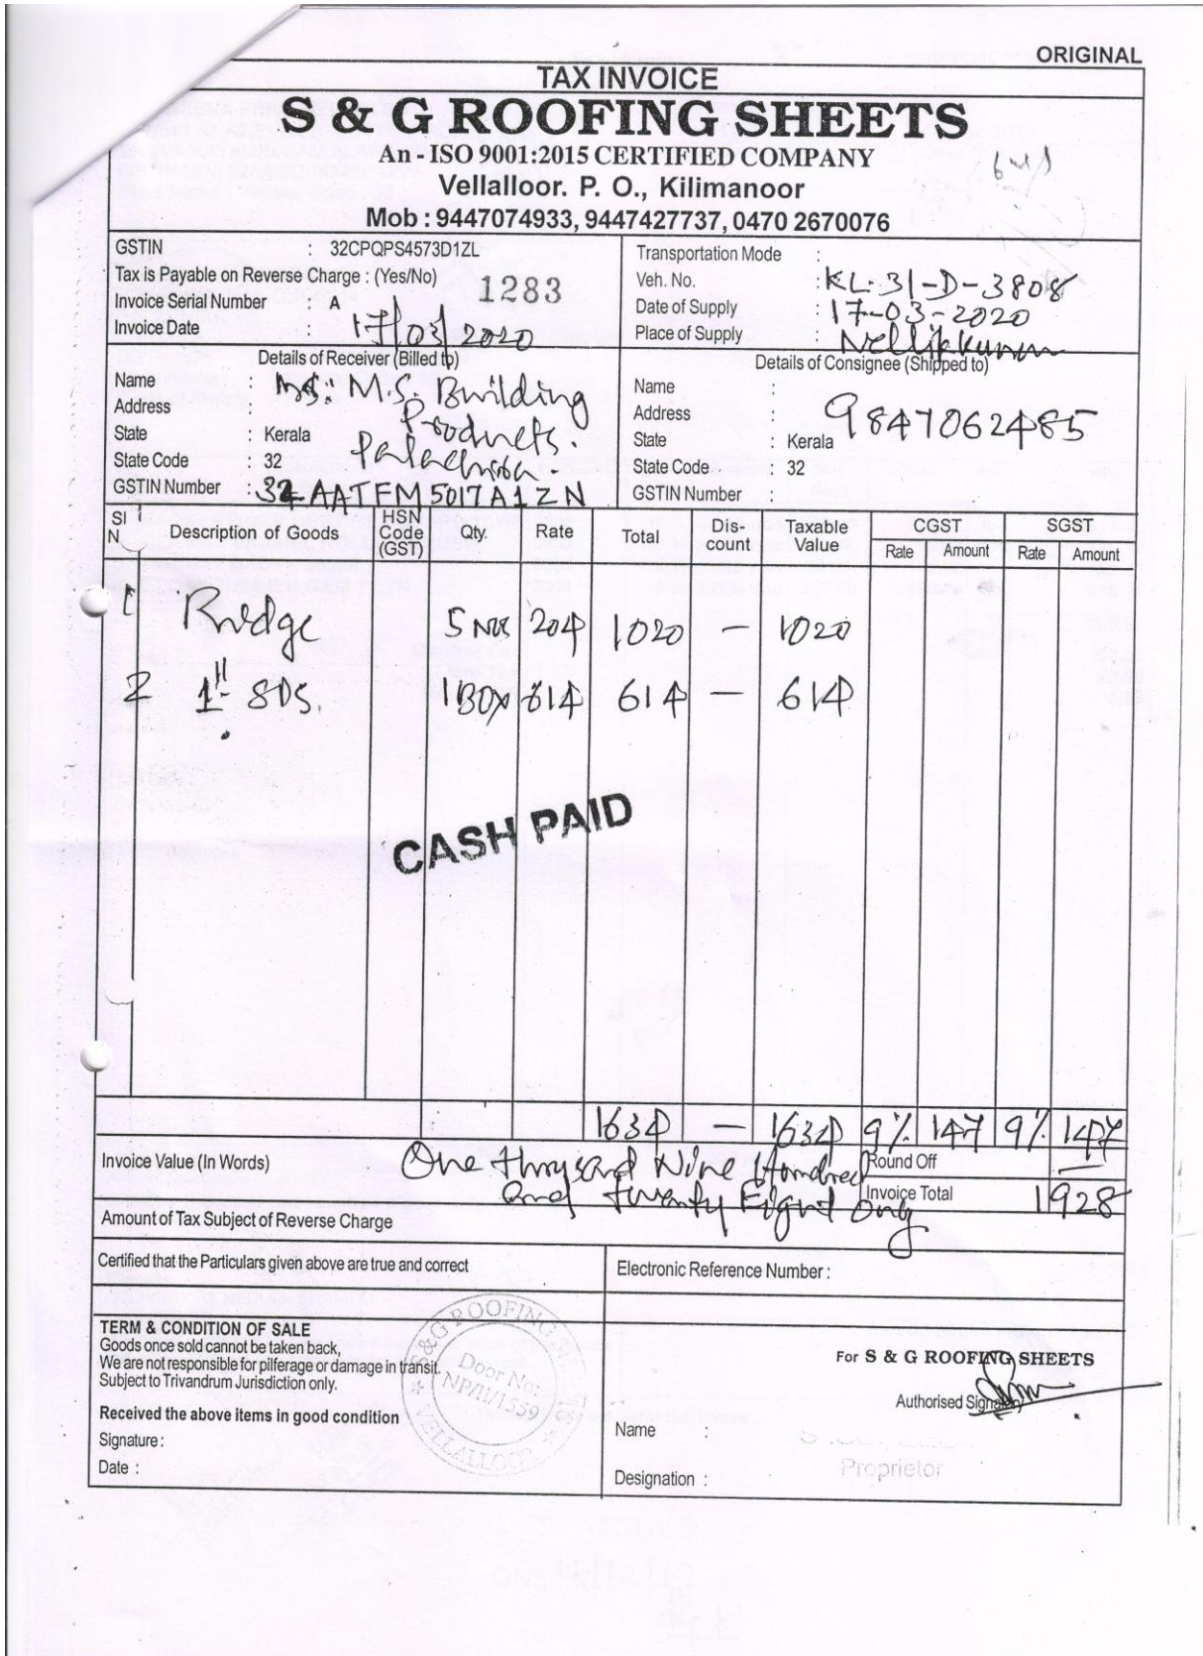 ORIGINAL
TAX INVOICE
S & G ROOFING SHEETS
An - ISO 9001:2015 CERTIFIED COMPANY
Vellalloor. P. O., Kilimanoor
Mob : 9447074933, 9447427737, 0470 2670076
GSTIN : 32CPQPS4573D1ZL
Tax is Payable on Reverse Charge : (Yes/No)
Invoice Serial Number : A 1283
Invoice Date : 17/03/2020
Transportation Mode :
Veh. No. : KL-31-D-3808
Date of Supply : 17-03-2020
Place of Supply : Nellikkunnu
Details of Receiver (Billed to)
Name : M.S. Building
Address : Products.
State : Kerala
State Code : 32
GSTIN Number : 32AATFM5017A1ZN
Details of Consignee (Shipped to)
Name :
Address : 9847062485
State : Kerala
State Code : 32
GSTIN Number :
Sl N Description of Goods HSN Code (GST) Qty. Rate Total Dis-count Taxable Value CGST SGST
Rate Amount Rate Amount
1 Ridge 5 Nos 204 1020 - 1020
2 1" SDS. 1 Box 614 614 - 614
CASH PAID
1634 - 1634 9% 147 9% 147
Invoice Value (In Words) One thousand Nine Hundred
and twenty Eight Only
Round Off -
Invoice Total 1928
Amount of Tax Subject of Reverse Charge
Certified that the Particulars given above are true and correct
Electronic Reference Number :
TERM & CONDITION OF SALE
Goods once sold cannot be taken back,
We are not responsible for pilferage or damage in transit.
Subject to Trivandrum Jurisdiction only.
Received the above items in good condition
Signature :
Date :
S&G ROOFING SHEETS
Door No:
NP/II/1559
VELLALLOOR
For S & G ROOFING SHEETS
Authorised Signatory
Name :
Proprietor
Designation :